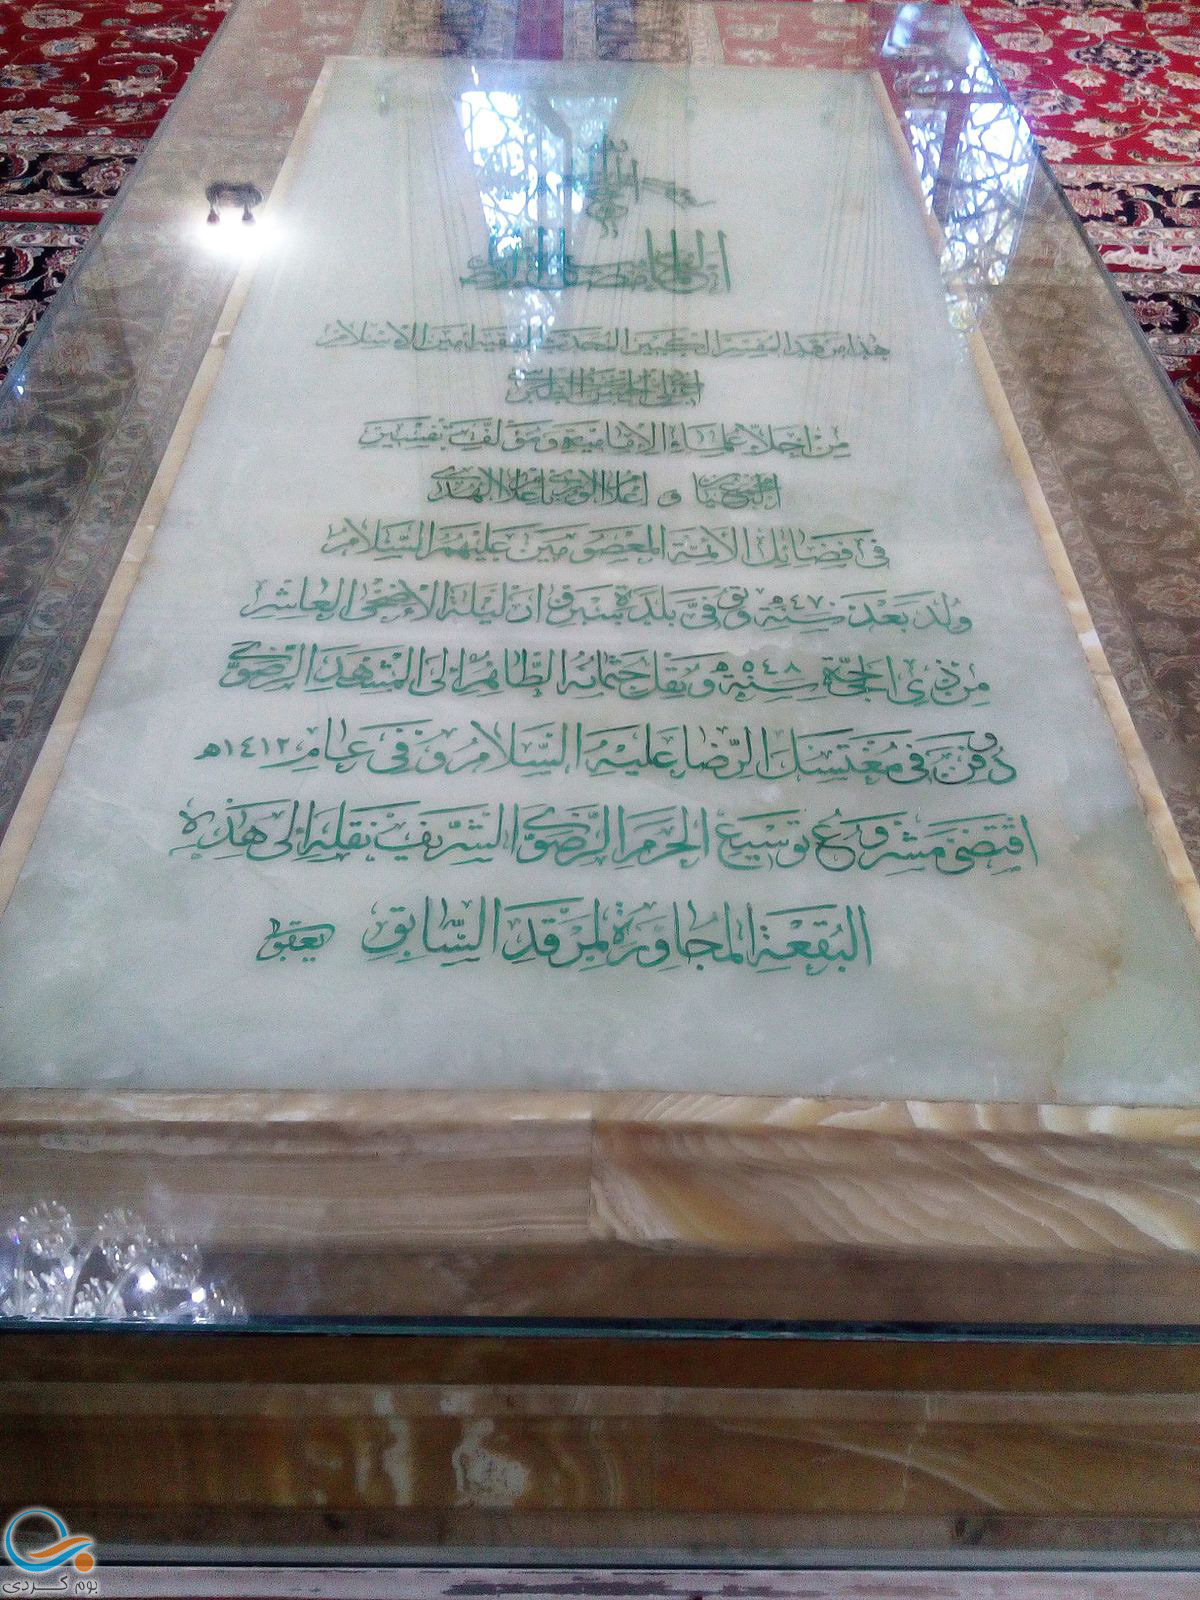 هذا مرقد المفسر الكبير المحدث الفقيه امين الاسلام
من اجلاء علماء الامامية و مؤلف تفسير
و اعلام الورى باعلام الهدى
فى فضائل الائمة المعصومين عليهم السلام
ولد بعد سنة ٤٧٠ه‍ وتوفى فى بلدة سبزوار ليلة الاضحى العاشر
من ذى الحجة سنة ٥٤٨ه‍ ونقل جثمانه الطاهر الى المشهد الرضوى
ودفن فى مغتسل الرضا عليه السلام و فى عام ١٤١٢ه‍
اقتضى مشروع توسيع الحرم الرضوى الشريف نقله الى هذه
البقعة المجاورة لمرقد السابق
بوم گردی